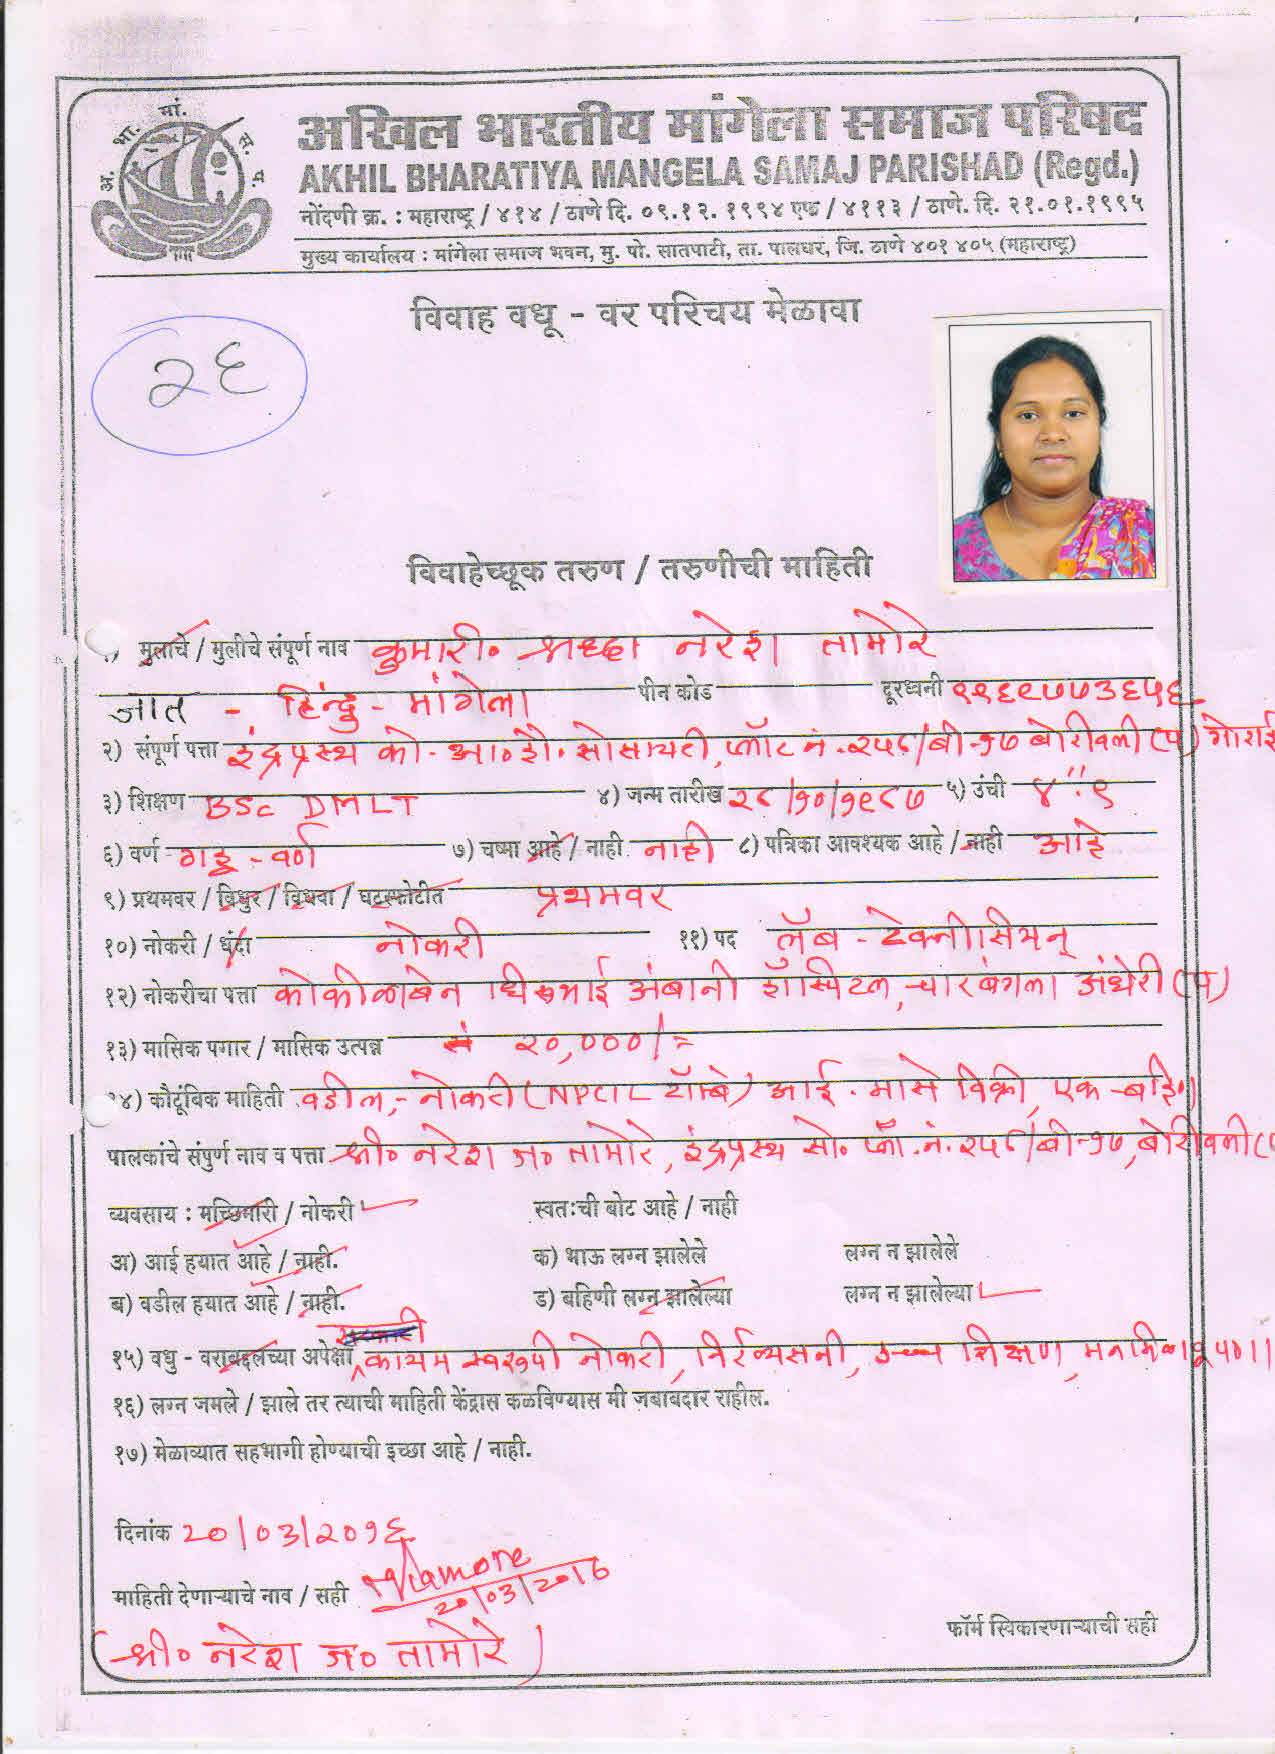 अ. भा. मां. स. प.
अखिल भारतीय मांगेला समाज परिषद
AKHIL BHARATIYA MANGELA SAMAJ PARISHAD (Regd.)
नोंदणी क्र. : महाराष्ट्र / ४१४ / ठाणे दि. ०९.१२. १९९४ एफ / ४११३ / ठाणे. दि. २१.०१.१९९५
मुख्य कार्यालय : मांगेला समाज भवन, मु. पो. सातपाटी, ता. पालघर, जि. ठाणे ४०१ ४०५ (महाराष्ट्र)
विवाह वधू - वर परिचय मेळावा
२६
विवाहेच्छूक तरुण / तरुणीची माहिती
१) मुलाचे / मुलीचे संपूर्ण नाव कुमारी० श्रध्दा नरेश तामोरे
जात - हिन्दु - मांगेला पीन कोड दूरध्वनी ९९६९७७३६५६
२) संपूर्ण पत्ता इंद्रप्रस्थ को- आ० हौ. सोसायटी, प्लॉट नं. २५८/बी-१७ बोरीवली (प) गोराई
३) शिक्षण BSc DMLT ४) जन्म तारीख २८/१०/१९८७ ५) उंची ४".९
६) वर्ण गहू - वर्ण ७) चष्मा आहे / नाही नाही ८) पत्रिका आवश्यक आहे / नाही आहे
९) प्रथमवर / विधुर / विधवा / घटस्फोटीत प्रथमवर
१०) नोकरी / धंदा नोकरी ११) पद लॅब - टेक्नीसियन्
१२) नोकरीचा पत्ता कोकीळाबेन धिरुभाई अंबानी हॉस्पिटल, चारबंगला अंधेरी (प)
१३) मासिक पगार / मासिक उत्पन्न २०,०००/=
१४) कौटूंबिक माहिती वडील,- नोकरी (NPCIL टॉम्बे) आई - मासे विक्री, एक -बहिण
पालकांचे संपुर्ण नाव व पत्ता श्री० नरेश ज० तामोरे, इंद्रप्रस्थ सो० प्लॉ. नं. २५८/बी-१७, बोरीवली (
व्यवसाय : मच्छिमारी / नोकरी स्वतःची बोट आहे / नाही
अ) आई हयात आहे / नाही. क) भाऊ लग्न झालेले लग्न न झालेले
ब) वडील हयात आहे / नाही. ड) बहिणी लग्न झालेल्या लग्न न झालेल्या
१५) वधु - वराबद्दलच्या अपेक्षा कायम स्वरुपी नोकरी, निर्व्यसनी, उच्च शिक्षण,
१६) लग्न जमले / झाले तर त्याची माहिती केंद्रास कळविण्यास मी जबाबदार राहील.
१७) मेळाव्यात सहभागी होण्याची इच्छा आहे / नाही.
दिनांक २०/०३/२०१६
माहिती देणाऱ्याचे नाव / सही Tamore
20/03/2016
फॉर्म स्विकारणाऱ्याची सही
(श्री० नरेश ज० तामोरे)